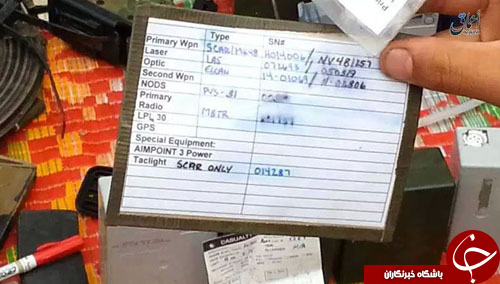 أعماق
Type SN#
Primary Wpn SCAR/MK48 H014006/NV48/257
Laser LA5 072695/050519
Optic ELCAN 14-01069/11-02806
Second Wpn
NODS PVS-31
Primary
Radio MBTR
LPL 30
GPS
Special Equipment:
AIMPOINT 3 Power
Taclight SCAR ONLY 014287
CASUALTY
باشگاه خبرنگاران